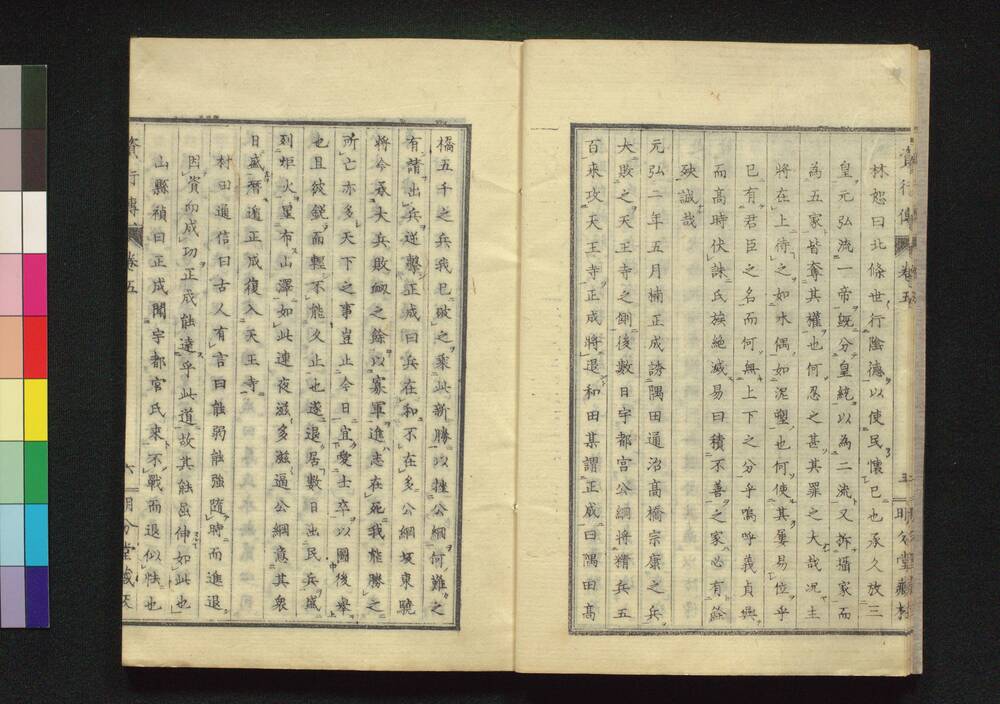 林恕曰北條世行陰德以使民懷已也承久放三
皇元弘流一帝既分皇統以為二流又拆攝家而
為五家皆奪其權也何忍之甚其罪之大哉况主
將在上待之如木偶如泥塑也何使其屢易位乎
已有君臣之名而何無上下之分乎嗚呼義貞興
而高時伏誅氏族絶滅易曰積不善之家必有餘
殃誠哉
元弘二年五月楠正成誘隅田通治高橋宗康之兵
大敗之天王寺之側後數日宇都宮公綱將精兵五
百来攻天王寺正成將退和田某謂正成曰隅田高
橋五千之兵我已破之乘此新勝以挫公綱何難之
有請出兵逆擊正成曰兵在和不在多公綱坂東驍
將今承大兵敗衂之餘以寡軍進志在死我雖勝之
所亡亦多天下之事豈止今日宜愛士卒以圖後舉
也且彼鋭而輕不能久止也遂退居數日出民兵盛
列炬火星布山澤如此連夜滋多滋逼公綱意其衆
日盛潛遁正成復入天王寺
村田通信曰古人有言曰能弱能強隨時而進退
因資而成功正成能達乎此道故其能屈伸如此也
山縣禎曰正成聞宇都宮氏來不戰而退似怯也
資行傳 卷五
六 明分堂藏